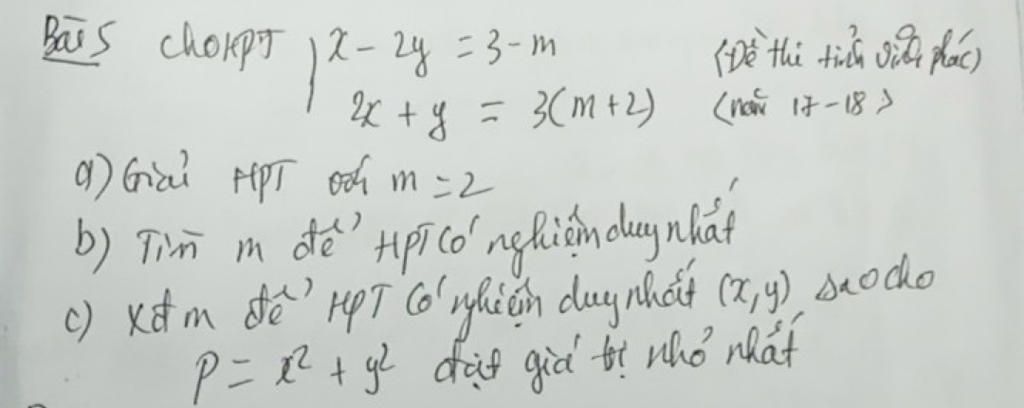 Bài 5 cho HPT x - 2y = 3 - m (Đề thi tỉnh Vĩnh phúc)
2x + y = 3(m+2) (năm 17-18)
a) Giải HPT với m = 2
b) Tìm m để HPT có nghiệm duy nhất
c) Xđ m để HPT có nghiệm duy nhất (x,y) sao cho
P = x² + y² đạt giá trị nhỏ nhất